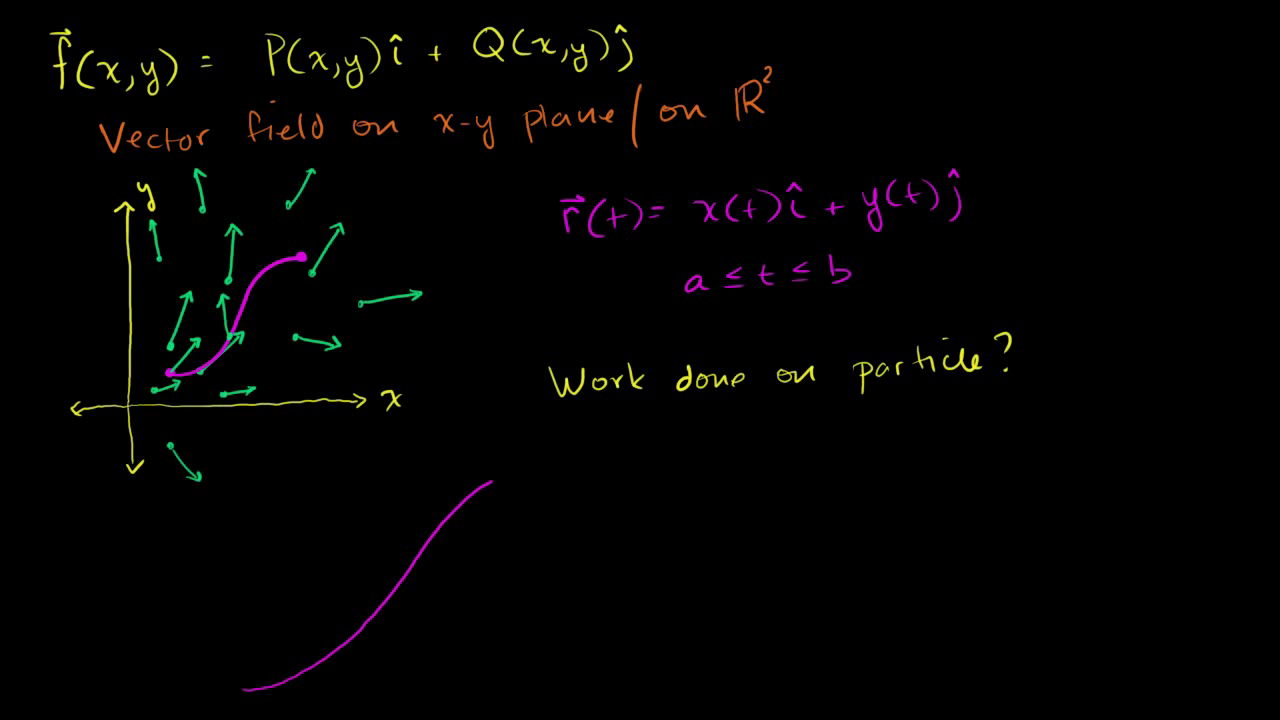 f⃗(x,y) = P(x,y)î + Q(x,y)ĵ
Vector field on x-y plane / on ℝ²
y
r⃗(t) = x(t)î + y(t)ĵ
a ≤ t ≤ b
Work done on particle?
x